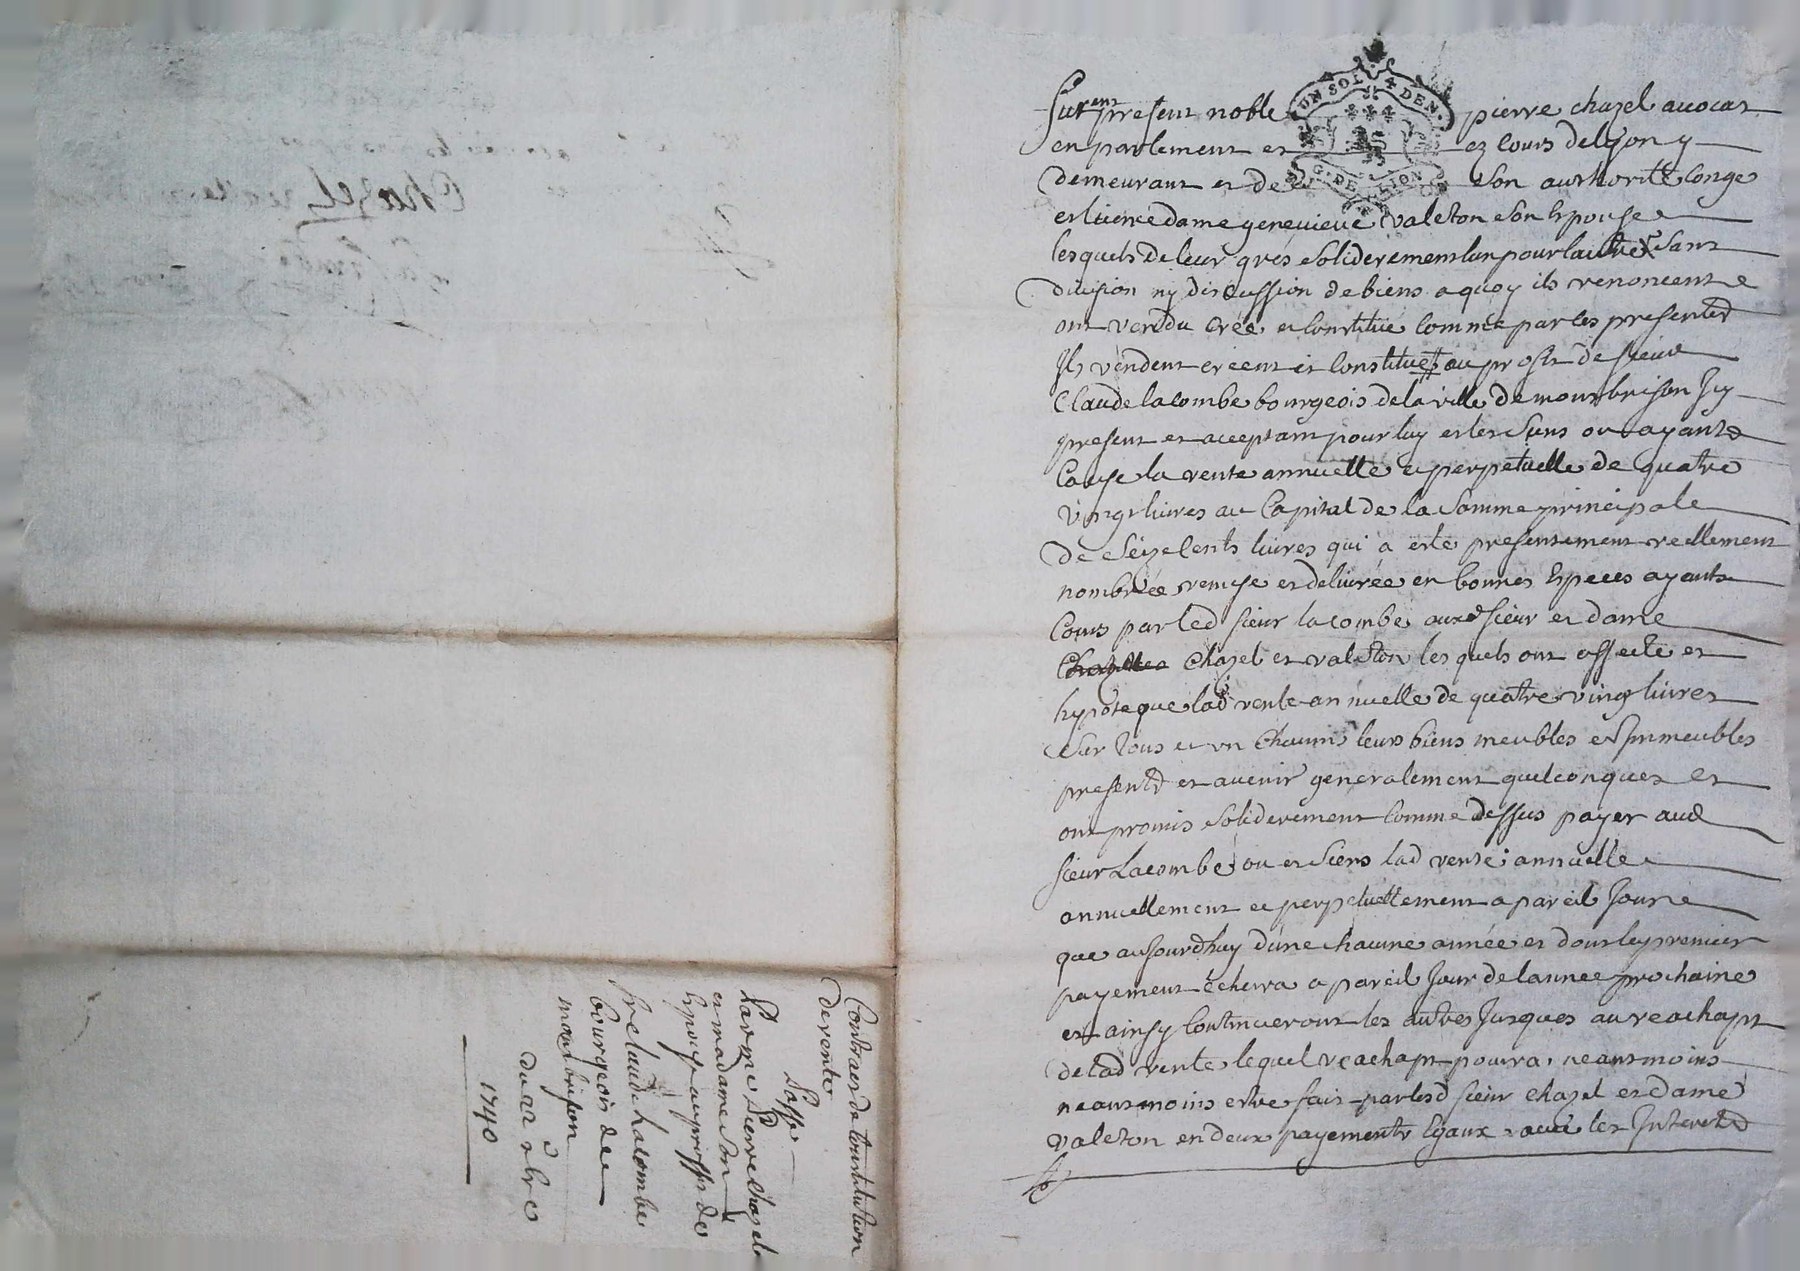 Furent present noble pierre chazel auocat
en parlement et ez cours de lyon y
demeurant et de son authorité conge
et licence dame genevieve valeton son Epouse
lesquels de leur grés soliderement lun pour lautre sans
division ny discussion de biens a quoy ils renoncent
ont vendu créé et constitué comme par les presentes
Ils vendent créent et constituent au profit de sieur
Claude lacombe bourgeois de la ville de montbrison Icy
present et acceptant pour luy et les siens ou ayants
Cause la rente annuelle et perpetuelle de quatre
vingt livres au Capital de la somme principale
de seize cents livres qui a esté presentement reellement
nombrée remise et delivrée en bonnes Especes ayants
Cours par led sieur lacombe auxd sieur et dame
Chazel et valeton lesquels ont affecté et
hypoteque lad rente annuelle de quatre vingt livres
sur tous et un chacuns leurs biens meubles et Immeubles
presents et avenir generalement quelconques et
ont promis soliderement comme dessus payer aud
sieur Lacombe ou es siens lad rente annuelle
annuellement et perpetuellement a pareil Jour
que aujourdhuy dune chacune année et dont le premier
payement échera a pareil Jour de lannee prochaine
et ainsy continueront les autres Jusques au reachapt
de lad rente lequel reachapt pourra neantmoins
neantmoins estre fait par lesd sieur chazel et dame
valeton en deux payements Egaux avec les Interets
Contract de constitution
de rente
Passé
Par me Pierre Chazel
et madame son
Epouse au proffit de
sr Claude Lacombe
bourgeois de
montbrison
du 22 xbre
1740
UN SOL 4 DEN.
G. DE LION